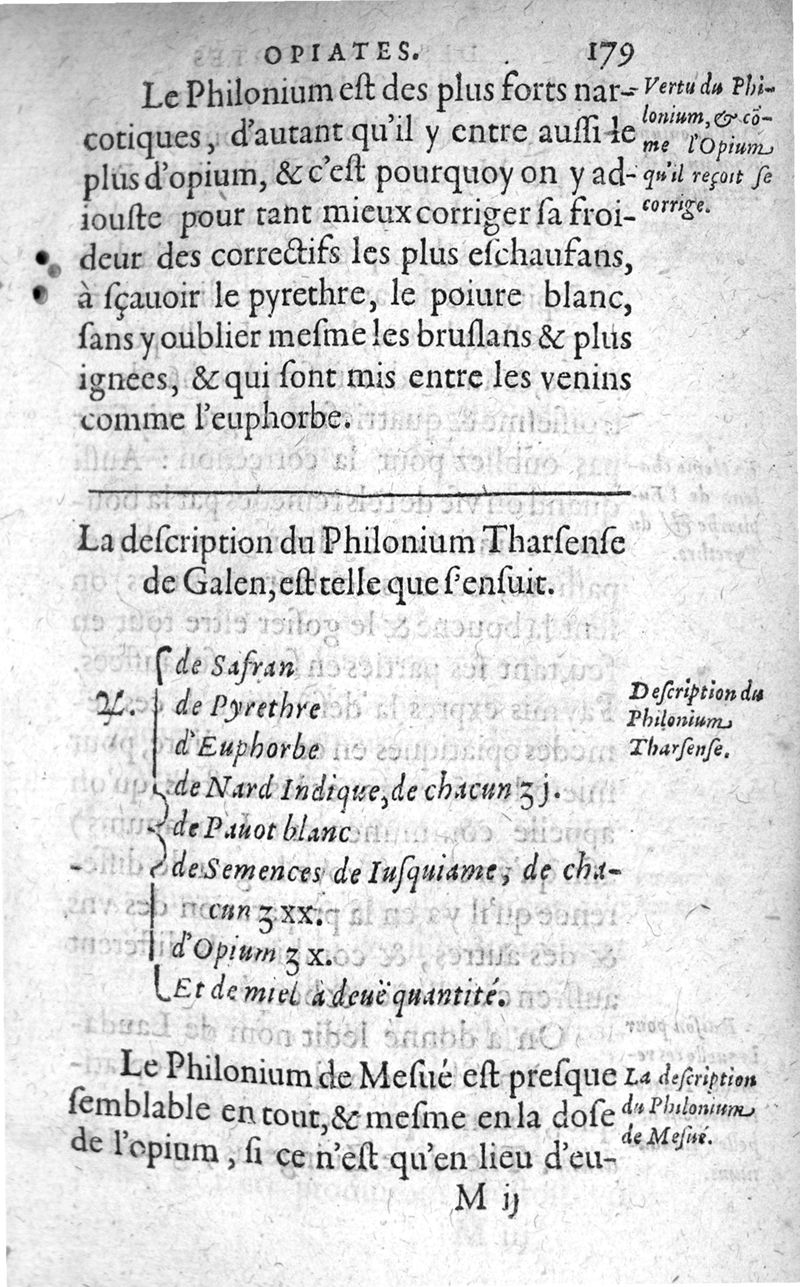 OPIATES. 179
Le Philonium eſt des plus forts nar-
cotiques, d'autant qu'il y entre auſſi le
plus d'opium, & c'eſt pourquoy on y ad-
iouſte pour tant mieux corriger ſa froi-
deur des correctifs les plus eſchaufans,
à ſçauoir le pyrethre, le poiure blanc,
ſans y oublier meſme les bruſlans & plus
ignees, & qui ſont mis entre les venins
comme l'euphorbe.
Vertu du Phi-
lonium, & cõ-
me l'Opium
qu'il reçoit ſe
corrige.
La deſcription du Philonium Tharſenſe
de Galen, eſt telle que s'enſuit.
de Safran
♃. de Pyrethre
d'Euphorbe
de Nard Indique, de chacun ʒ j.
de Pauot blanc
de Semences de Iuſquiame, de cha-
cun ʒ xx.
d'Opium ʒ x.
Et de miel à deuë quantité.
Deſcription du
Philonium
Tharſenſe.
Le Philonium de Meſué eſt preſque
ſemblable en tout, & meſme en la doſe
de l'opium, ſi ce n'eſt qu'en lieu d'eu-
La deſcription
du Philonium
de Meſué.
M ij